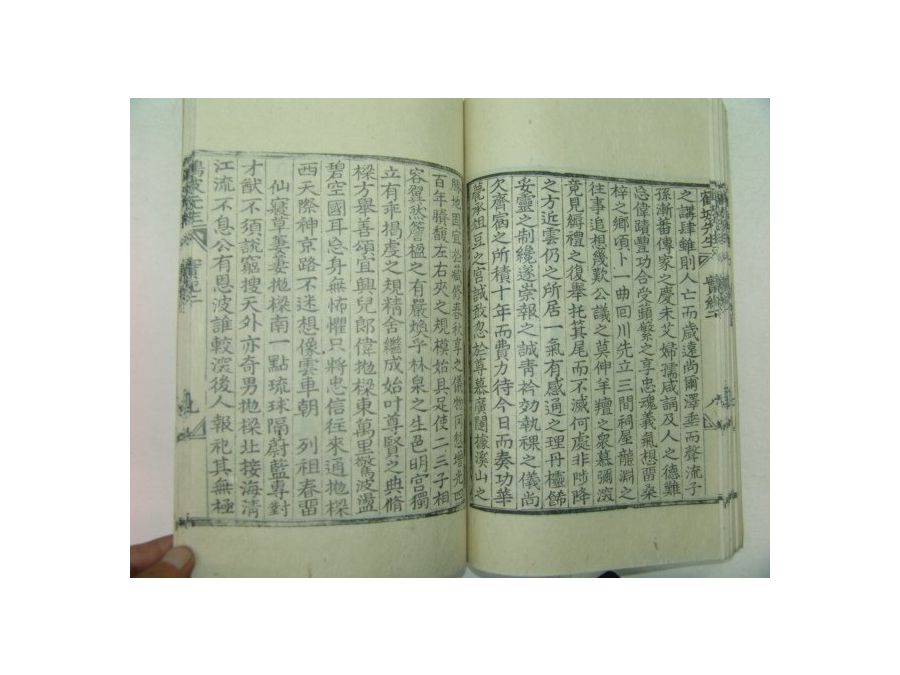 之講肆雖則人亡而歲遠尚爾澤垂而聲流子
孫漸蕃傳家之慶朱艾婦孺咸誦及人之德難
忘偉蹟豐功合受蘋蘩之享忠魂義氣想習桑
梓之鄕頃卜一曲回川先立三間祠屋龍淵之
往事追想幾歎公議之莫伸羊羶之衆慕彌深
竟見縟禮之復擧托箕尾而不滅何處非陟降
之方近雲仍之所居一氣有感通之理丹櫨餙
妥靈之制纔遂崇報之誠靑衿効執祼之儀尙
欠齊宿之所積十年而費力待今日而奏功華
甍承俎豆之宮誠敢忽於尊慕廣闥據溪山之
勝地固宜於藏修春秋享之儀物增光四
百年積馥左右夾之規模始具足使二三子相
容翼然簷楹之有嚴煥乎林泉之生色明宮獨
立有乖揭虔之規精舍繼成始叶尊賢之典脩
樑方擧善頌宜興兒郞偉抛樑東萬里驚波盪
碧空國耳忘身無怖懼只將忠信往來通抛樑
西天際神京路不迷想像雲車朝 列祖春留
仙寢草萋萋抛樑南一點琉球隔蔚藍專對
才猷不須說窮搜天外亦奇男抛樑北接海淸
江流不息公有恩波誰較深後人報祀其無極
鶴坡先生 實紀二 九